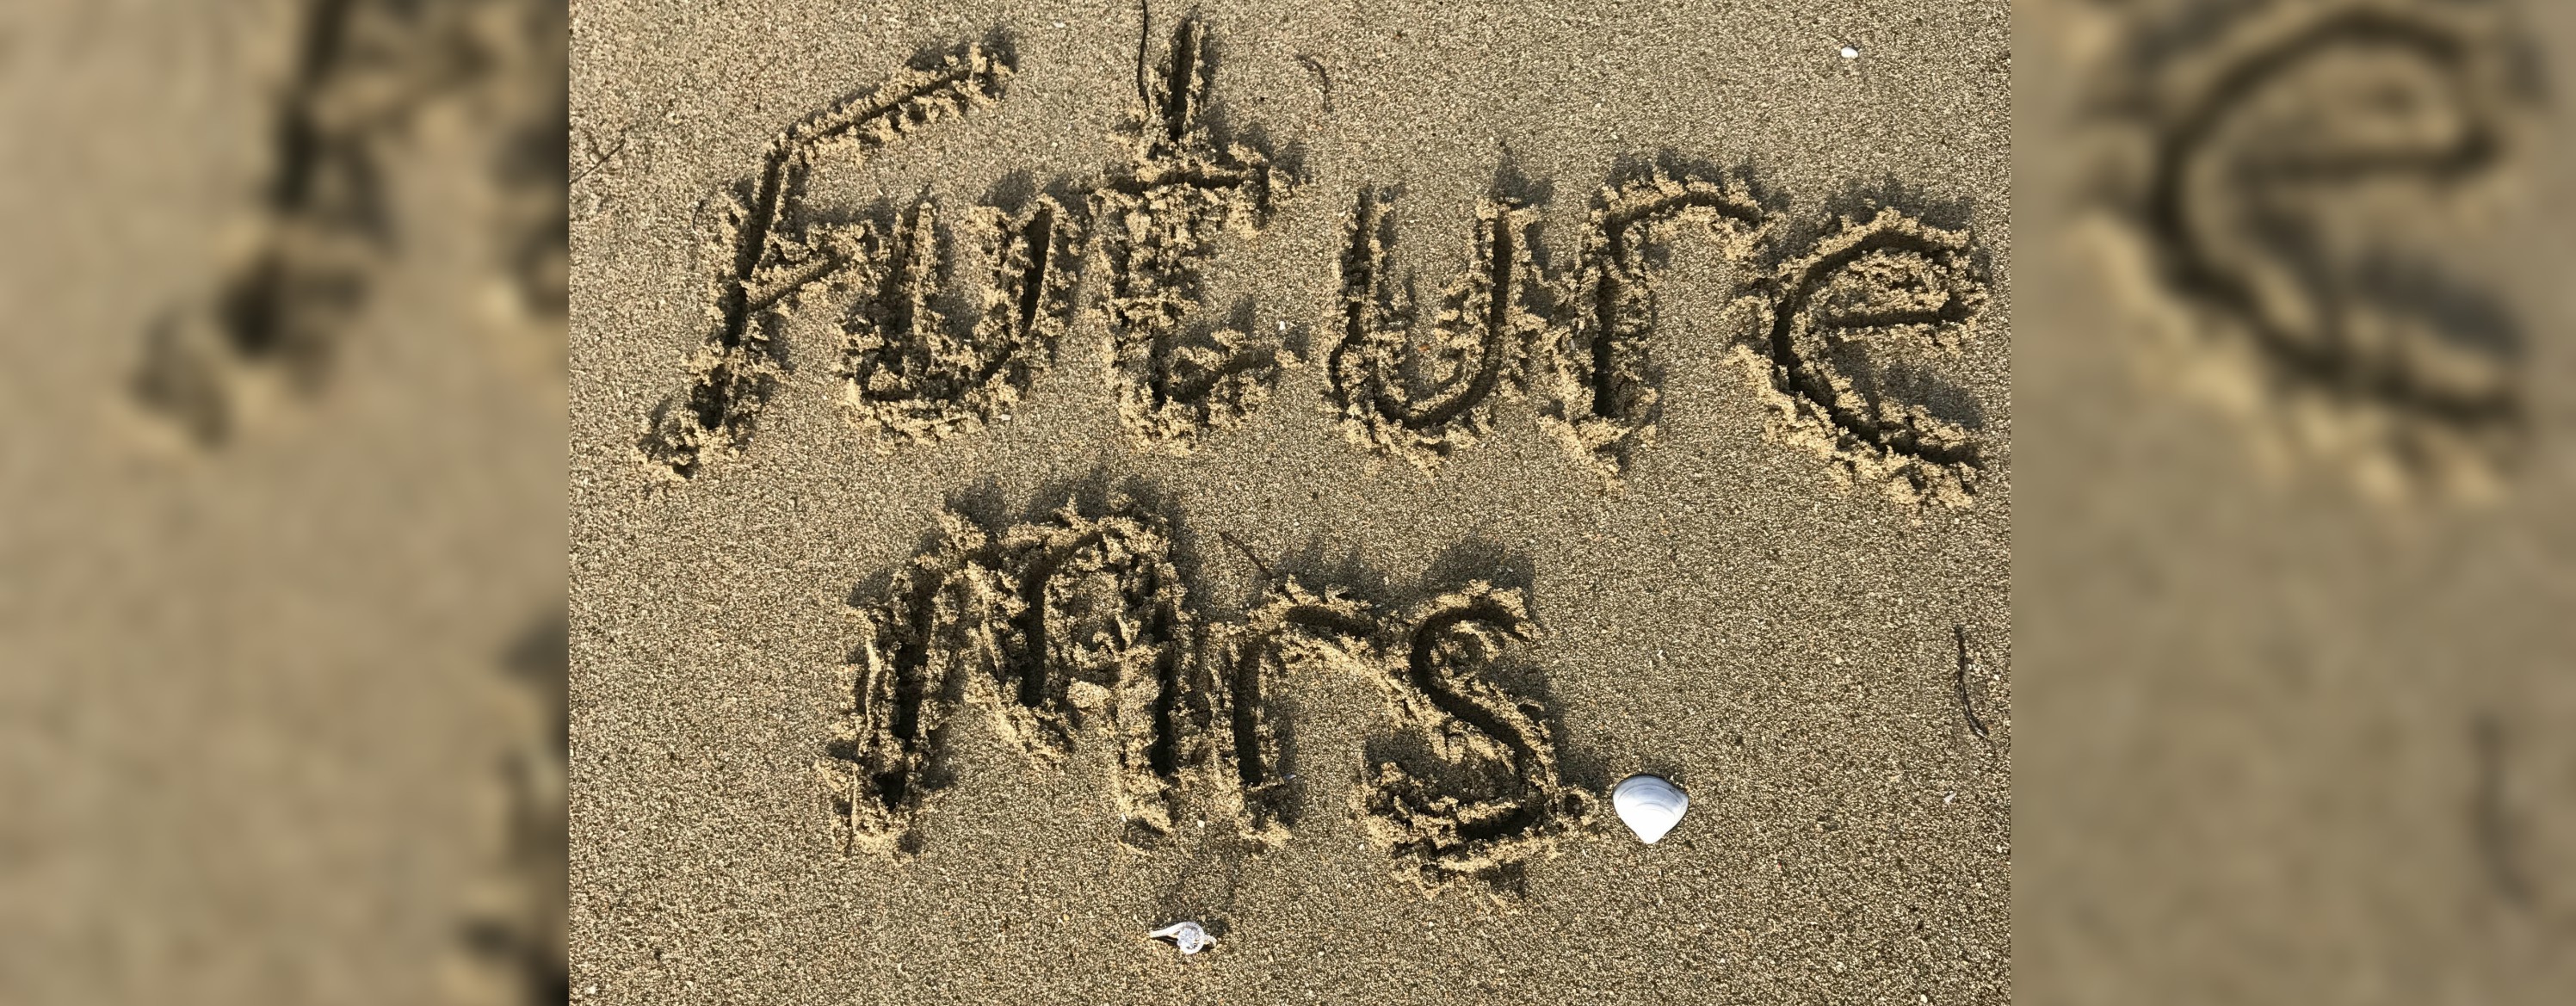 Future
Mrs